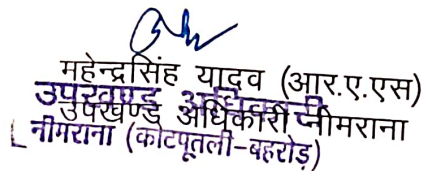 महेन्द्रसिंह यादव (आर.ए.एस)
उपखण्ड अधिकारी
उपखण्ड अधिकारी नीमराना
नीमराना (कोटपूतली-बहरोड़)